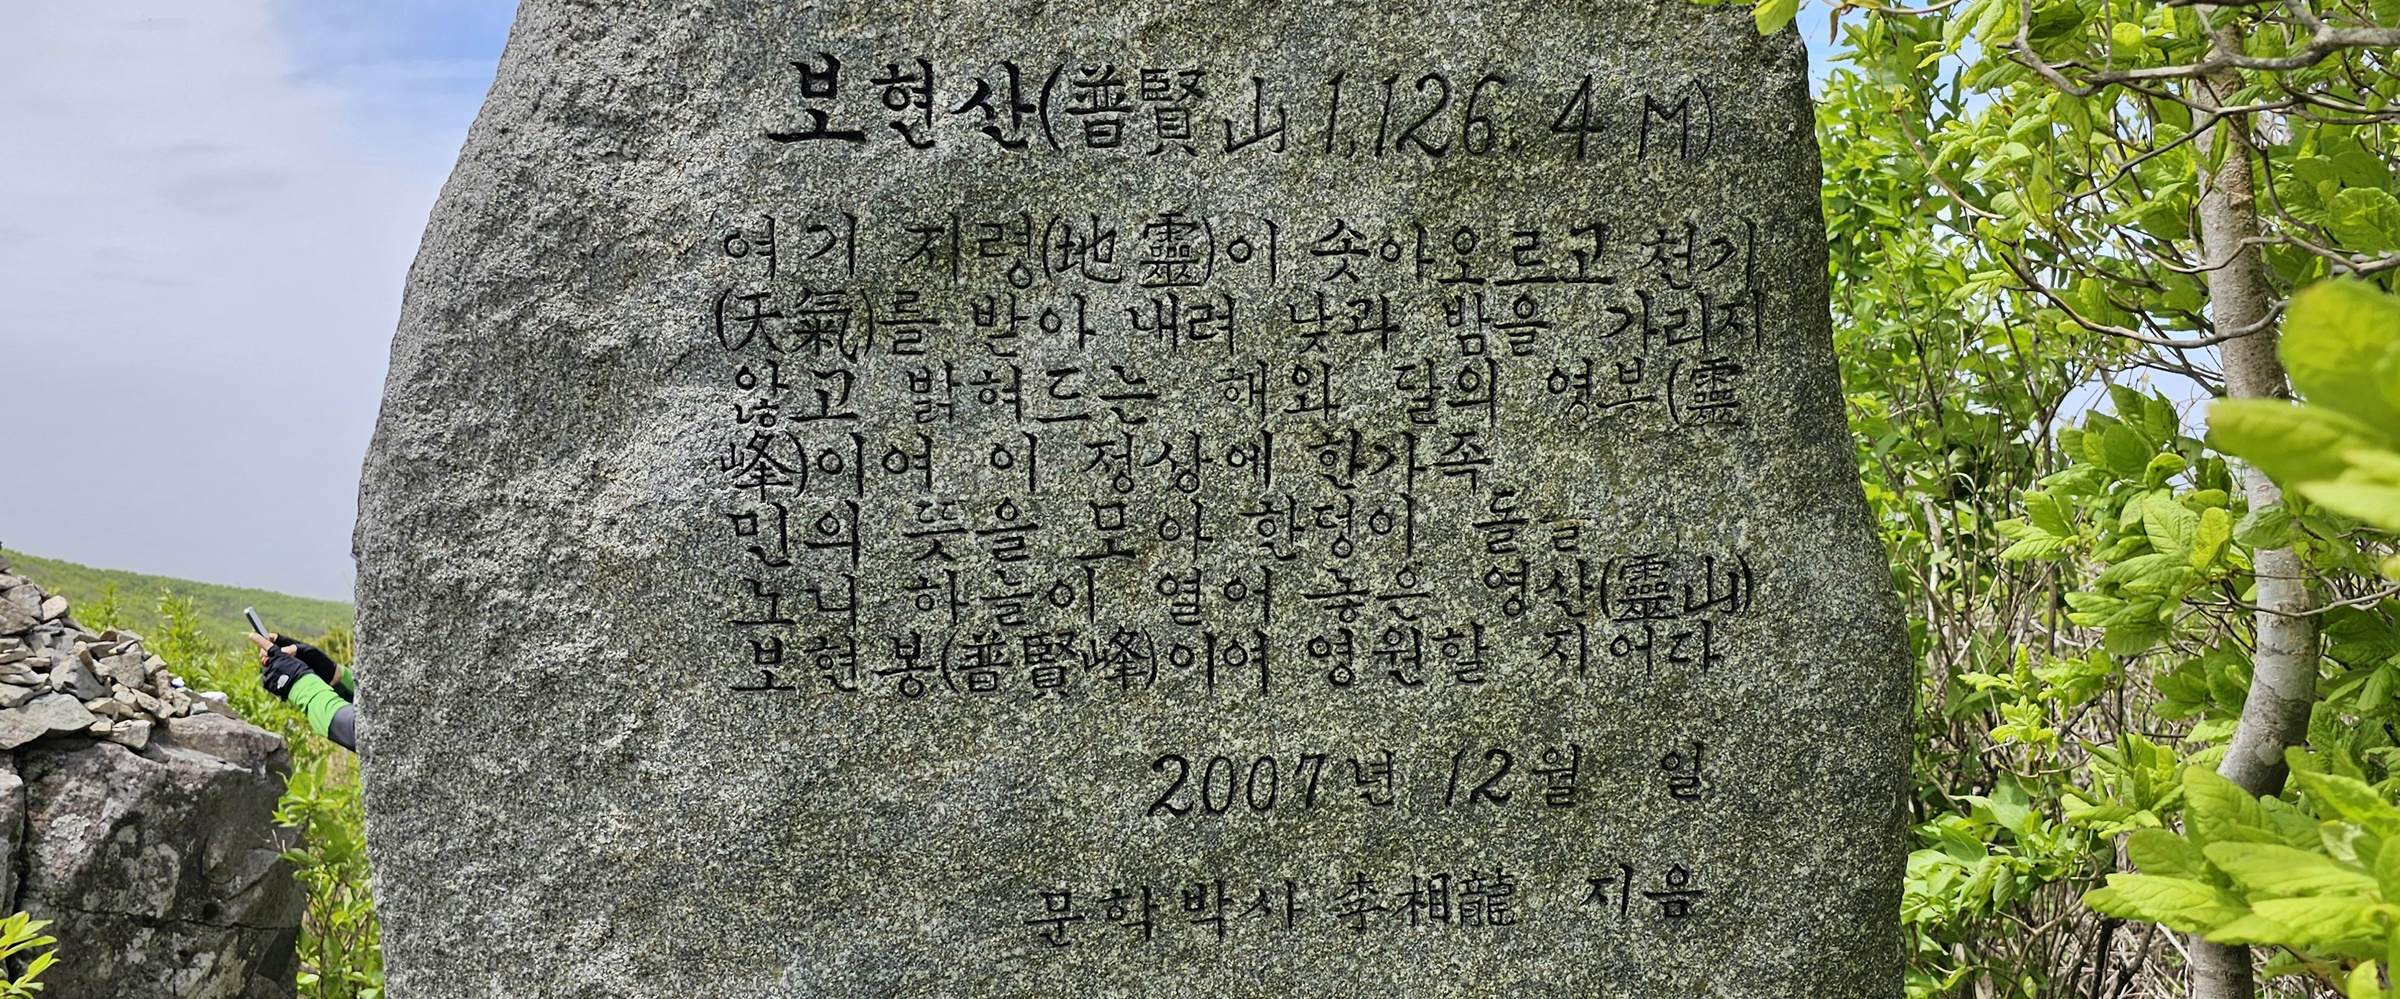 보현산(普賢山 1,126.4M)
여기 지령(地靈)이 솟아오르고 천기
(天氣)를 받아 내려 낮과 밤을 가리지
않고 밝혀드는 해와 달의 영봉(靈
峰)이여 이 정상에 한가족
민의 뜻을 모아 한덩이 돌을
노니 하늘이 열어 놓은 영산(靈山)
보현봉(普賢峰)이여 영원할 지어다
2007년 12월 일
문학박사 李相龍 지음